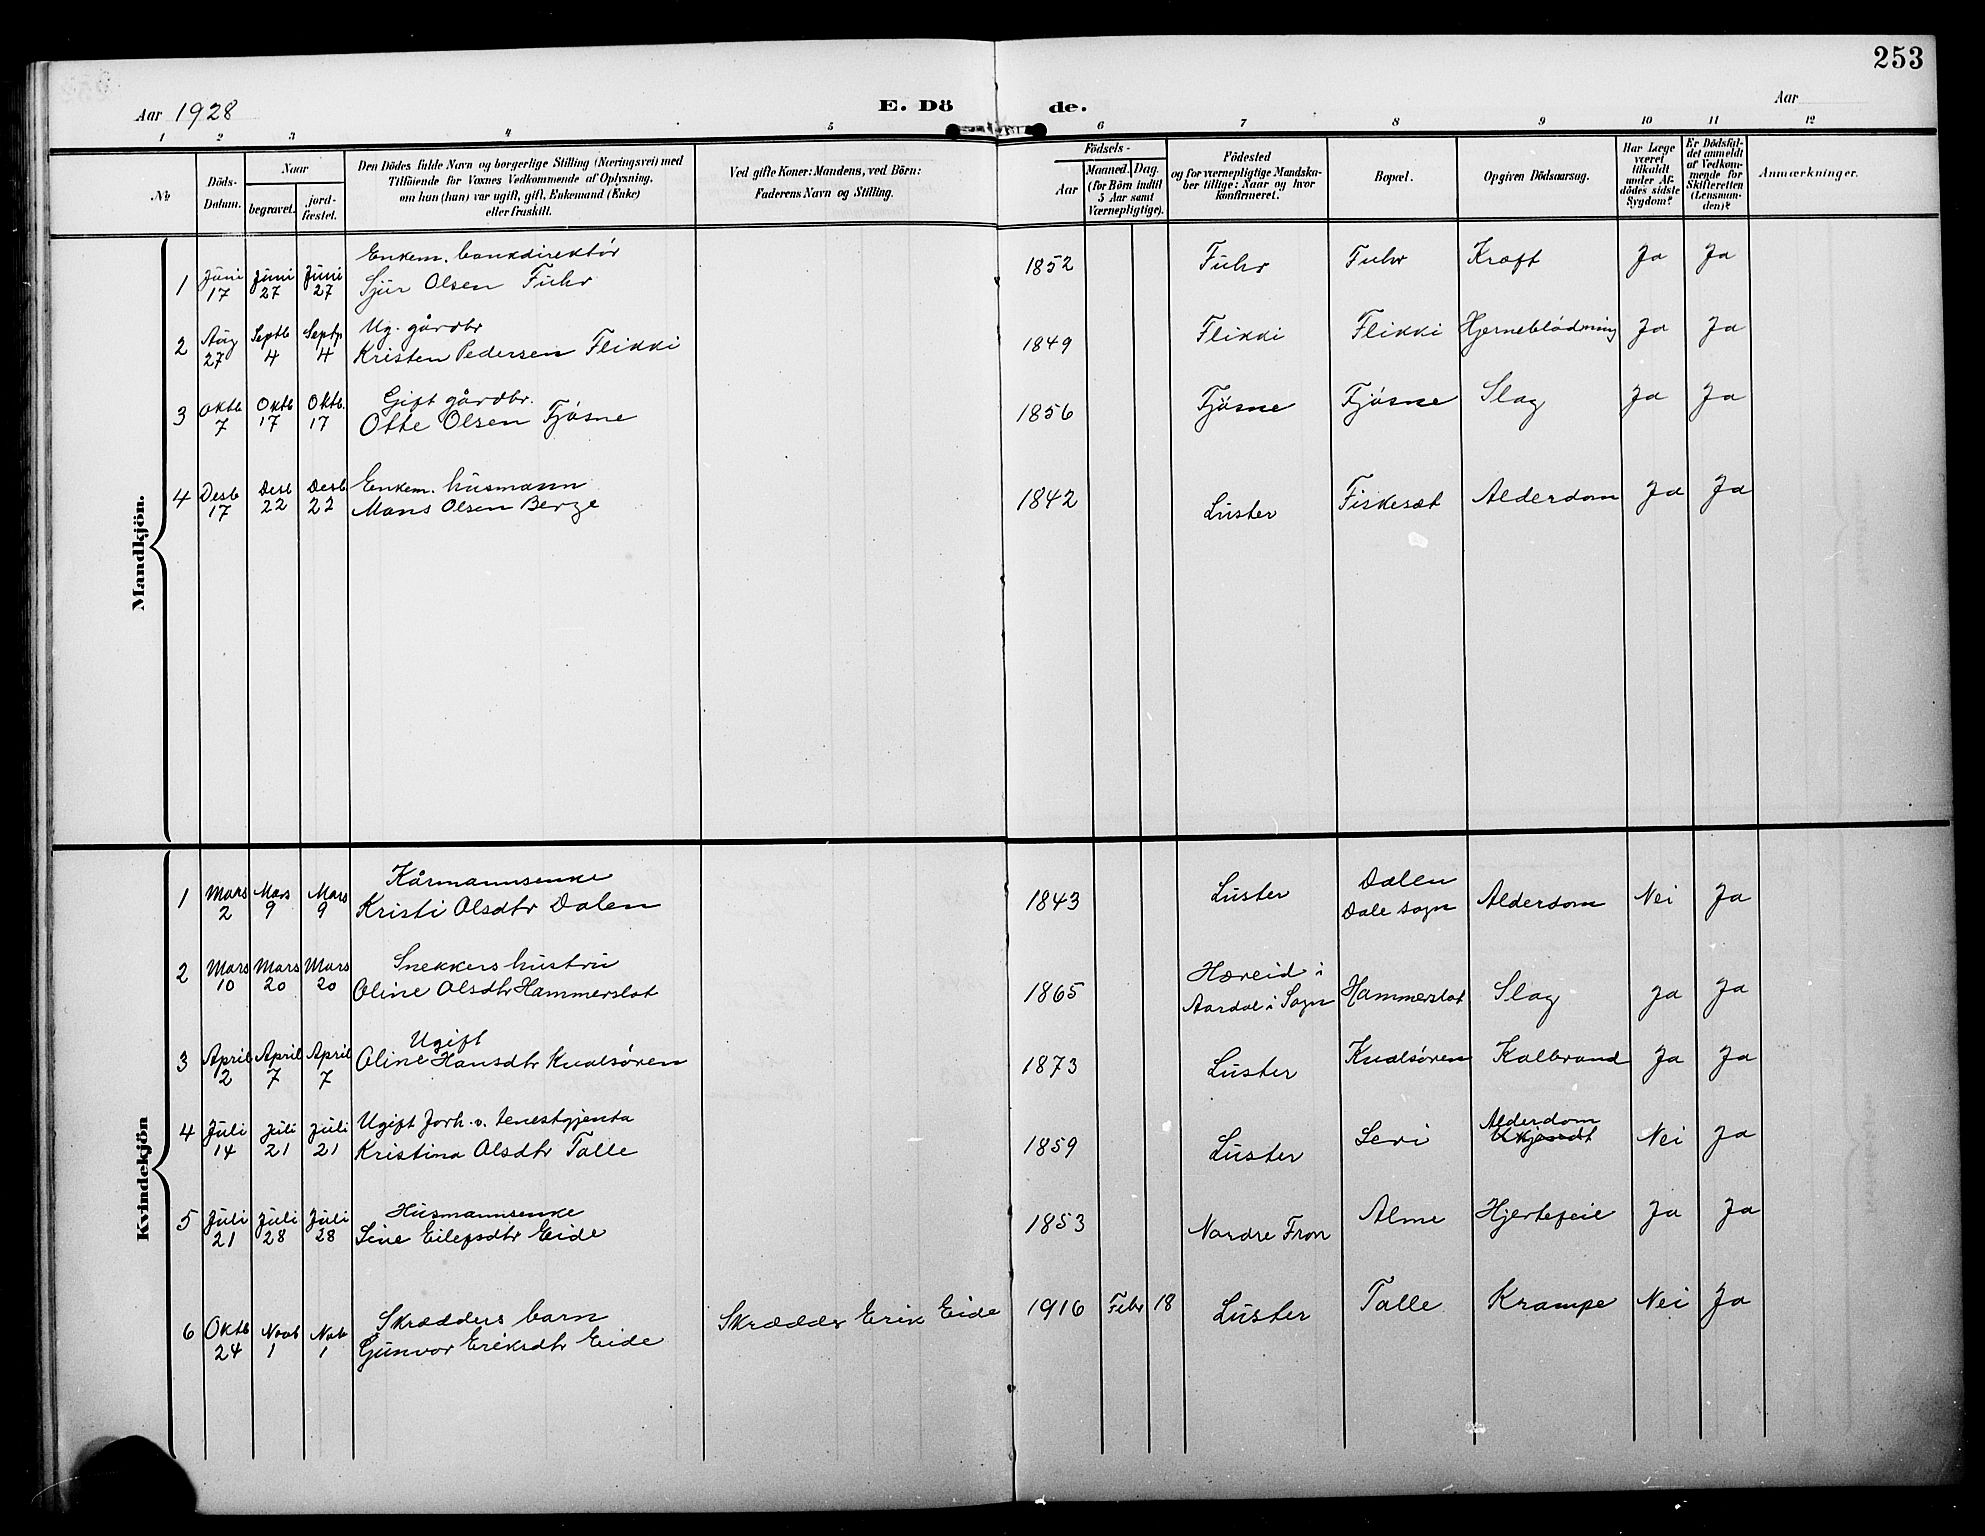 253
Aar 1928
E. Dö
de.
Aar
1 2 3 4 5 6 7 8 9 10 11 12
No
Döds-
Datum.
Naar
begravet.
jord-
fæstet.
Den Dödes fulde Navn og borgerlige Stilling (Næringsvei) med
Tilföiende for Voxnes Vedkommende af Oplysning,
om hun (hun) var ugift, gift, Enkemand (Enke)
eller fraskilt.
Ved gifte Koner: Mandens, ved Börn:
Faderens Navn og Stilling.
Födsels-
Aar
Maaned. Dag.
(for Börn indtil
5 Aar samt
Værnepligtige).
Födested
og for værnepligtige Mandska-
ber tillige: Naar og hvor
Konfirmeret.
Bopæl.
Opgiven Dödsaarsag.
Har Læge
været
tilkaldt
under Af-
dödes sidste
Sygdom?
Er Dödsfal-
det anmeldt
af Vedkom-
mende for
Skifteretten
(Lensman-
den)?
Anmærkninger.
Mandkjön.
1 Juni 17 Juni 27 Juni 27 Enkem. bankdirektør
Sjur Olsen Fuhr 1852 Fuhr Fuhr Kræft Ja Ja
2 Aug 27 Septb 4 Septb 4 Ug. gårdbr
Kristen Pedersen Flikki 1849 Flikki Flikki Hjerneblødning Ja Ja
3 Oktb 7 Oktb 17 Oktb. 17 Gift gårdbr.
Otte Olsen Fjøsne 1856 Fjøsne Fjøsne Slag Ja Ja
4 Desb 17 Desb 22 Desb 22 Enkem. husmann
Mons Olsen Berge 1842 Luster Fiskesæt Alderdom Ja Ja
Kvindekjön
1 Mars 2 Mars 9 Mars 9 Kårmannsenke
Kristi Olsdtr Dalen 1843 Luster Dalen
Dale sogn Alderdom Nei Ja
2 Mars 10 Mars 20 Mars 20 Snekkers hustru
Oline Olsdtr Hammerslot 1865 Hæreid i
Aardal i Sogn Hammerslot Slag Ja Ja
3 April 2 April 7 April 7 Ugift
Oline Hansdtr Kvalsøren 1873 Luster Kvalsøren Kolbrand Ja Ja
4 Juli 14 Juli 21 Juli 21 Ugift forh. v. tenestgjenta
Kristina Olsdtr Talle 1859 Luster Levi Alderdom
Ukjendt Nei Ja
5 Juli 21 Juli 28 Juli 28 Husmannsenke
Sine Eilefsdtr Eide 1853 Nordre Fron Alme Hjertefeil Ja Ja
6 Oktb 24 Novb 1 Nvb 1 Skrædders barn
Gunvor Eriksdtr Eide Skrædder Erik Eide 1916 Febr 18 Luster Talle Krampe Nei Ja